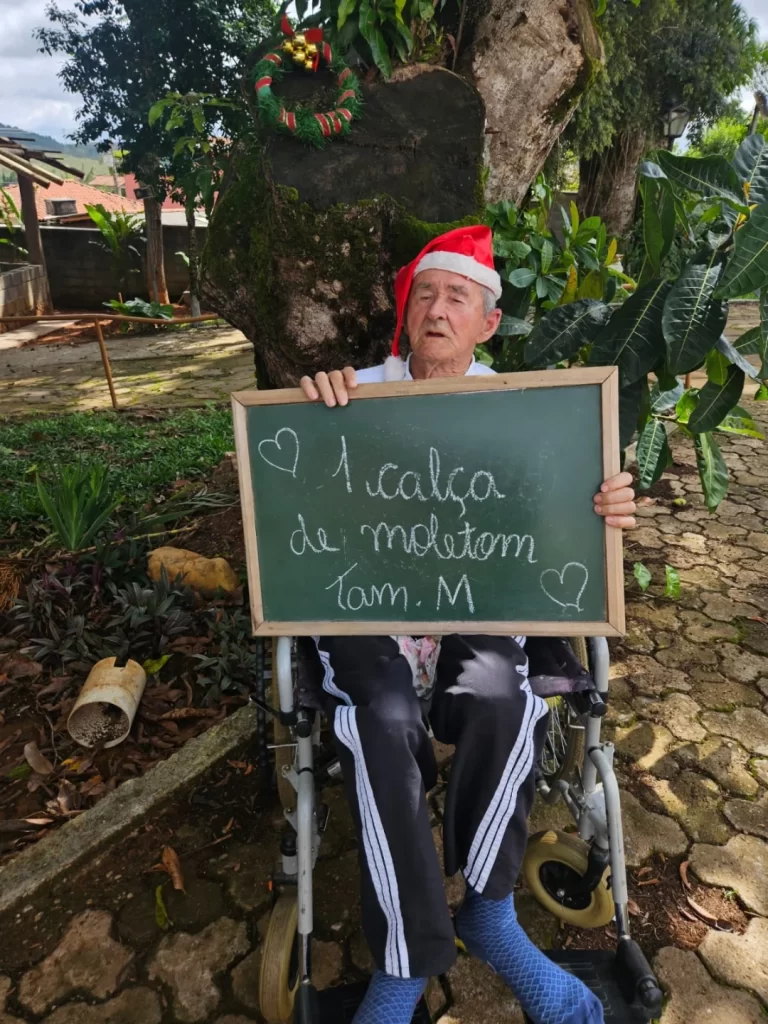 1 calça
de moletom
Tam. M